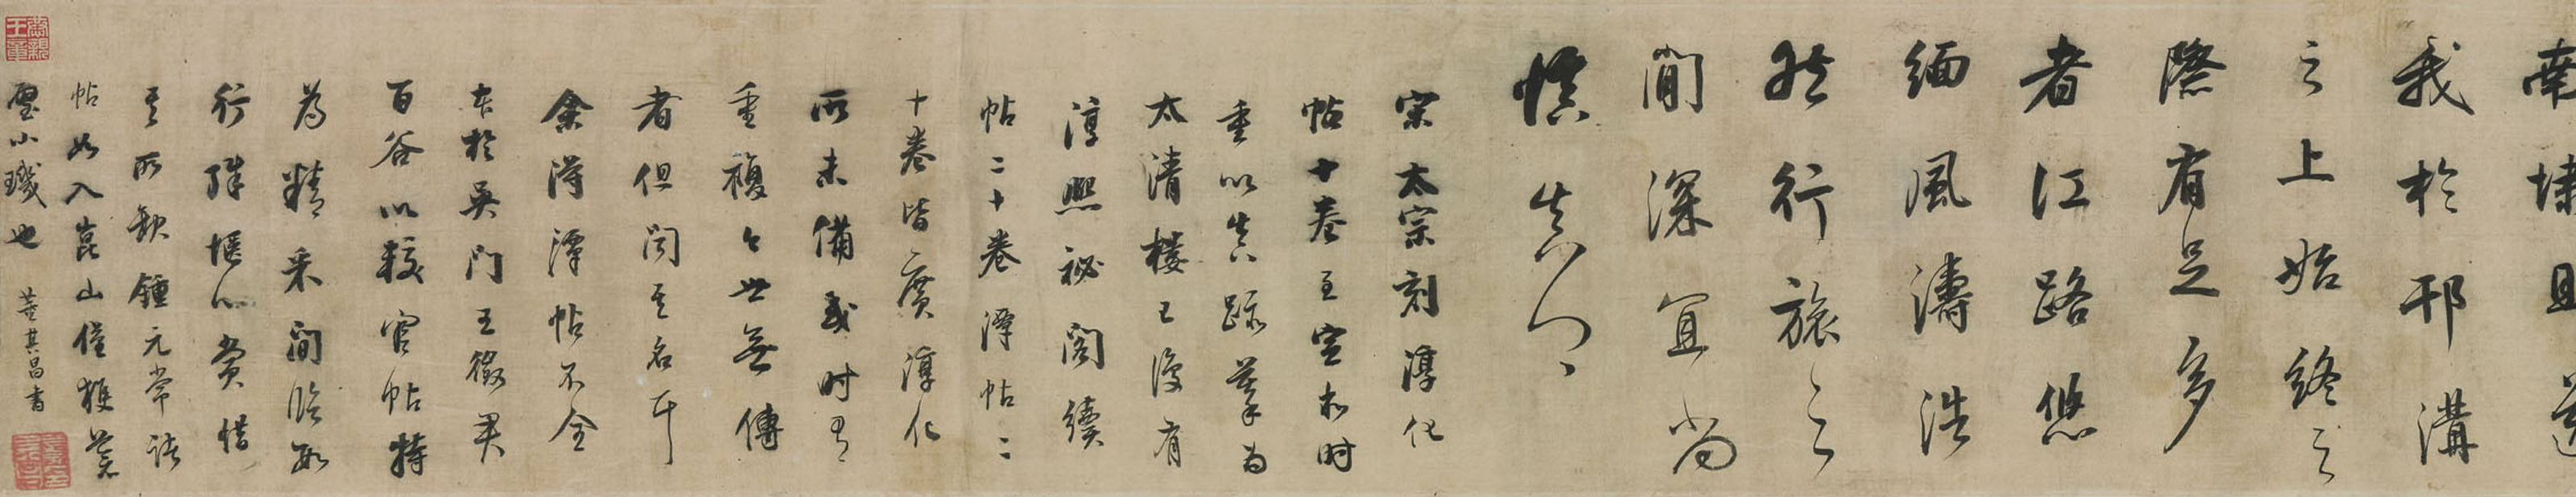 南埭且
我於邗溝
之上始終之
際有足多
者江路悠
緬風濤浩
然行旅之
間深宜尚
慎真
宋太宗刻淳化
帖十卷至宣和時
重以真跡摹為
太清樓已後有
淳熙祕閣續
帖二十卷潭帖二
十卷皆廣淳化
所未備或時有
重複今世無傳
者但聞其名耳
余得潭帖不全
本於吳門王徵君
百谷以較官帖特
為精采間臨數
行殊愜心賞惜
其所缺鍾元常諸
帖如入崑山僅獲
璧小璣也 董其昌書